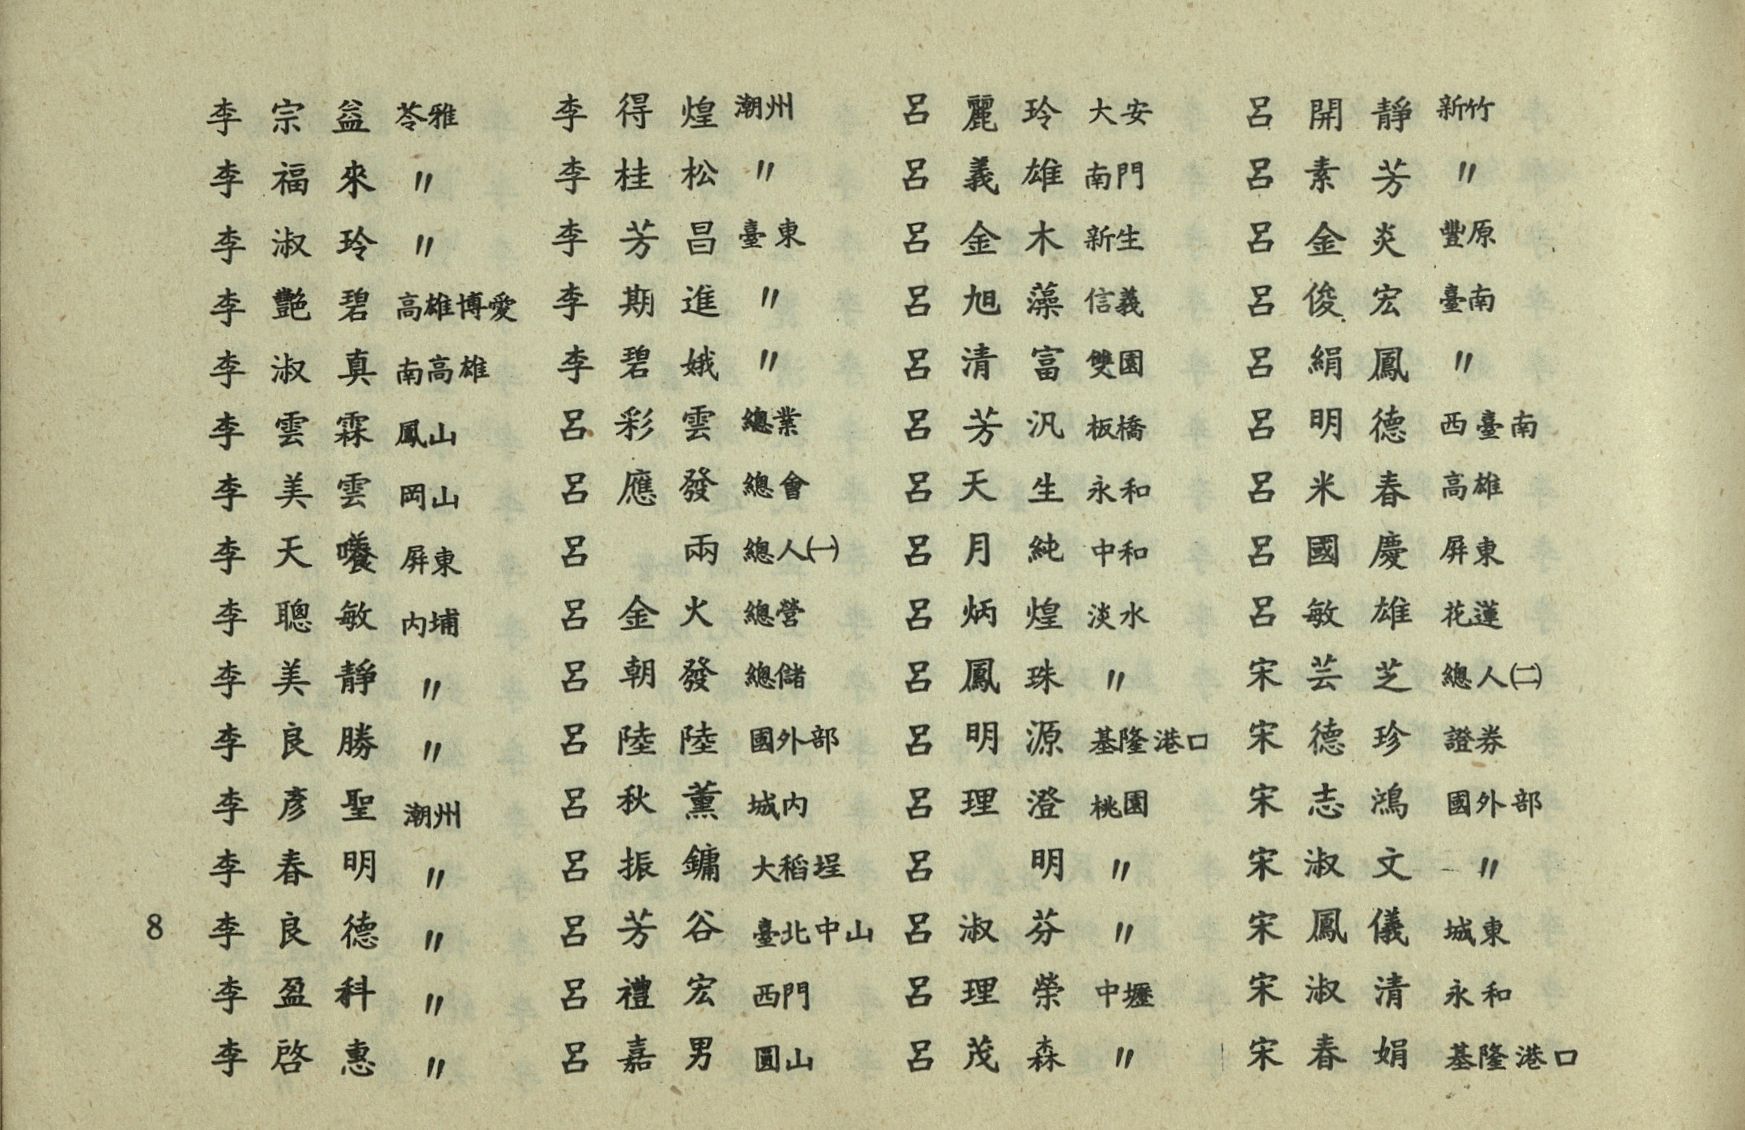 李宗益 苓雅
李福來 〃
李淑玲 〃
李艷碧 高雄博愛
李淑真 南高雄
李雲霖 鳳山
李美雲 岡山
李天 屏東
李聰敏 內埔
李美靜 〃
李良勝 〃
李彥聖 潮州
李春明 〃
李良德 〃
李盈科 〃
李啓惠 〃
李得煌 潮州
李桂松 〃
李芳昌 臺東
李期進 〃
李碧娥 〃
呂彩雲 總業
呂應發 總會
呂 兩 總人㈠
呂金火 總營
呂朝發 總儲
呂陸陸 國外部
呂秋薰 城内
呂振鏞 大稻埕
呂芳谷 臺北中山
呂禮宏 西門
呂嘉男 圓山
呂麗玲 大安
呂義雄 南門
呂金木 新生
呂旭藻 信義
呂清富 雙園
呂芳汎 板橋
呂天生 永和
呂月純 中和
呂炳煌 淡水
呂鳳珠 〃
呂明源 基隆港口
呂理澄 桃園
呂 明 〃
呂淑芬 〃
呂理榮 中壢
呂茂森 〃
呂開靜 新竹
呂素芳 〃
呂金炎 豐原
呂俊宏 臺南
呂絹鳳 〃
呂明德 西臺南
呂米春 高雄
呂國慶 屏東
呂敏雄 花蓮
宋芸芝 總人㈡
宋德珍 證券
宋志鴻 國外部
宋淑文 〃
宋鳳儀 城東
宋淑清 永和
宋春娟 基隆港口
8